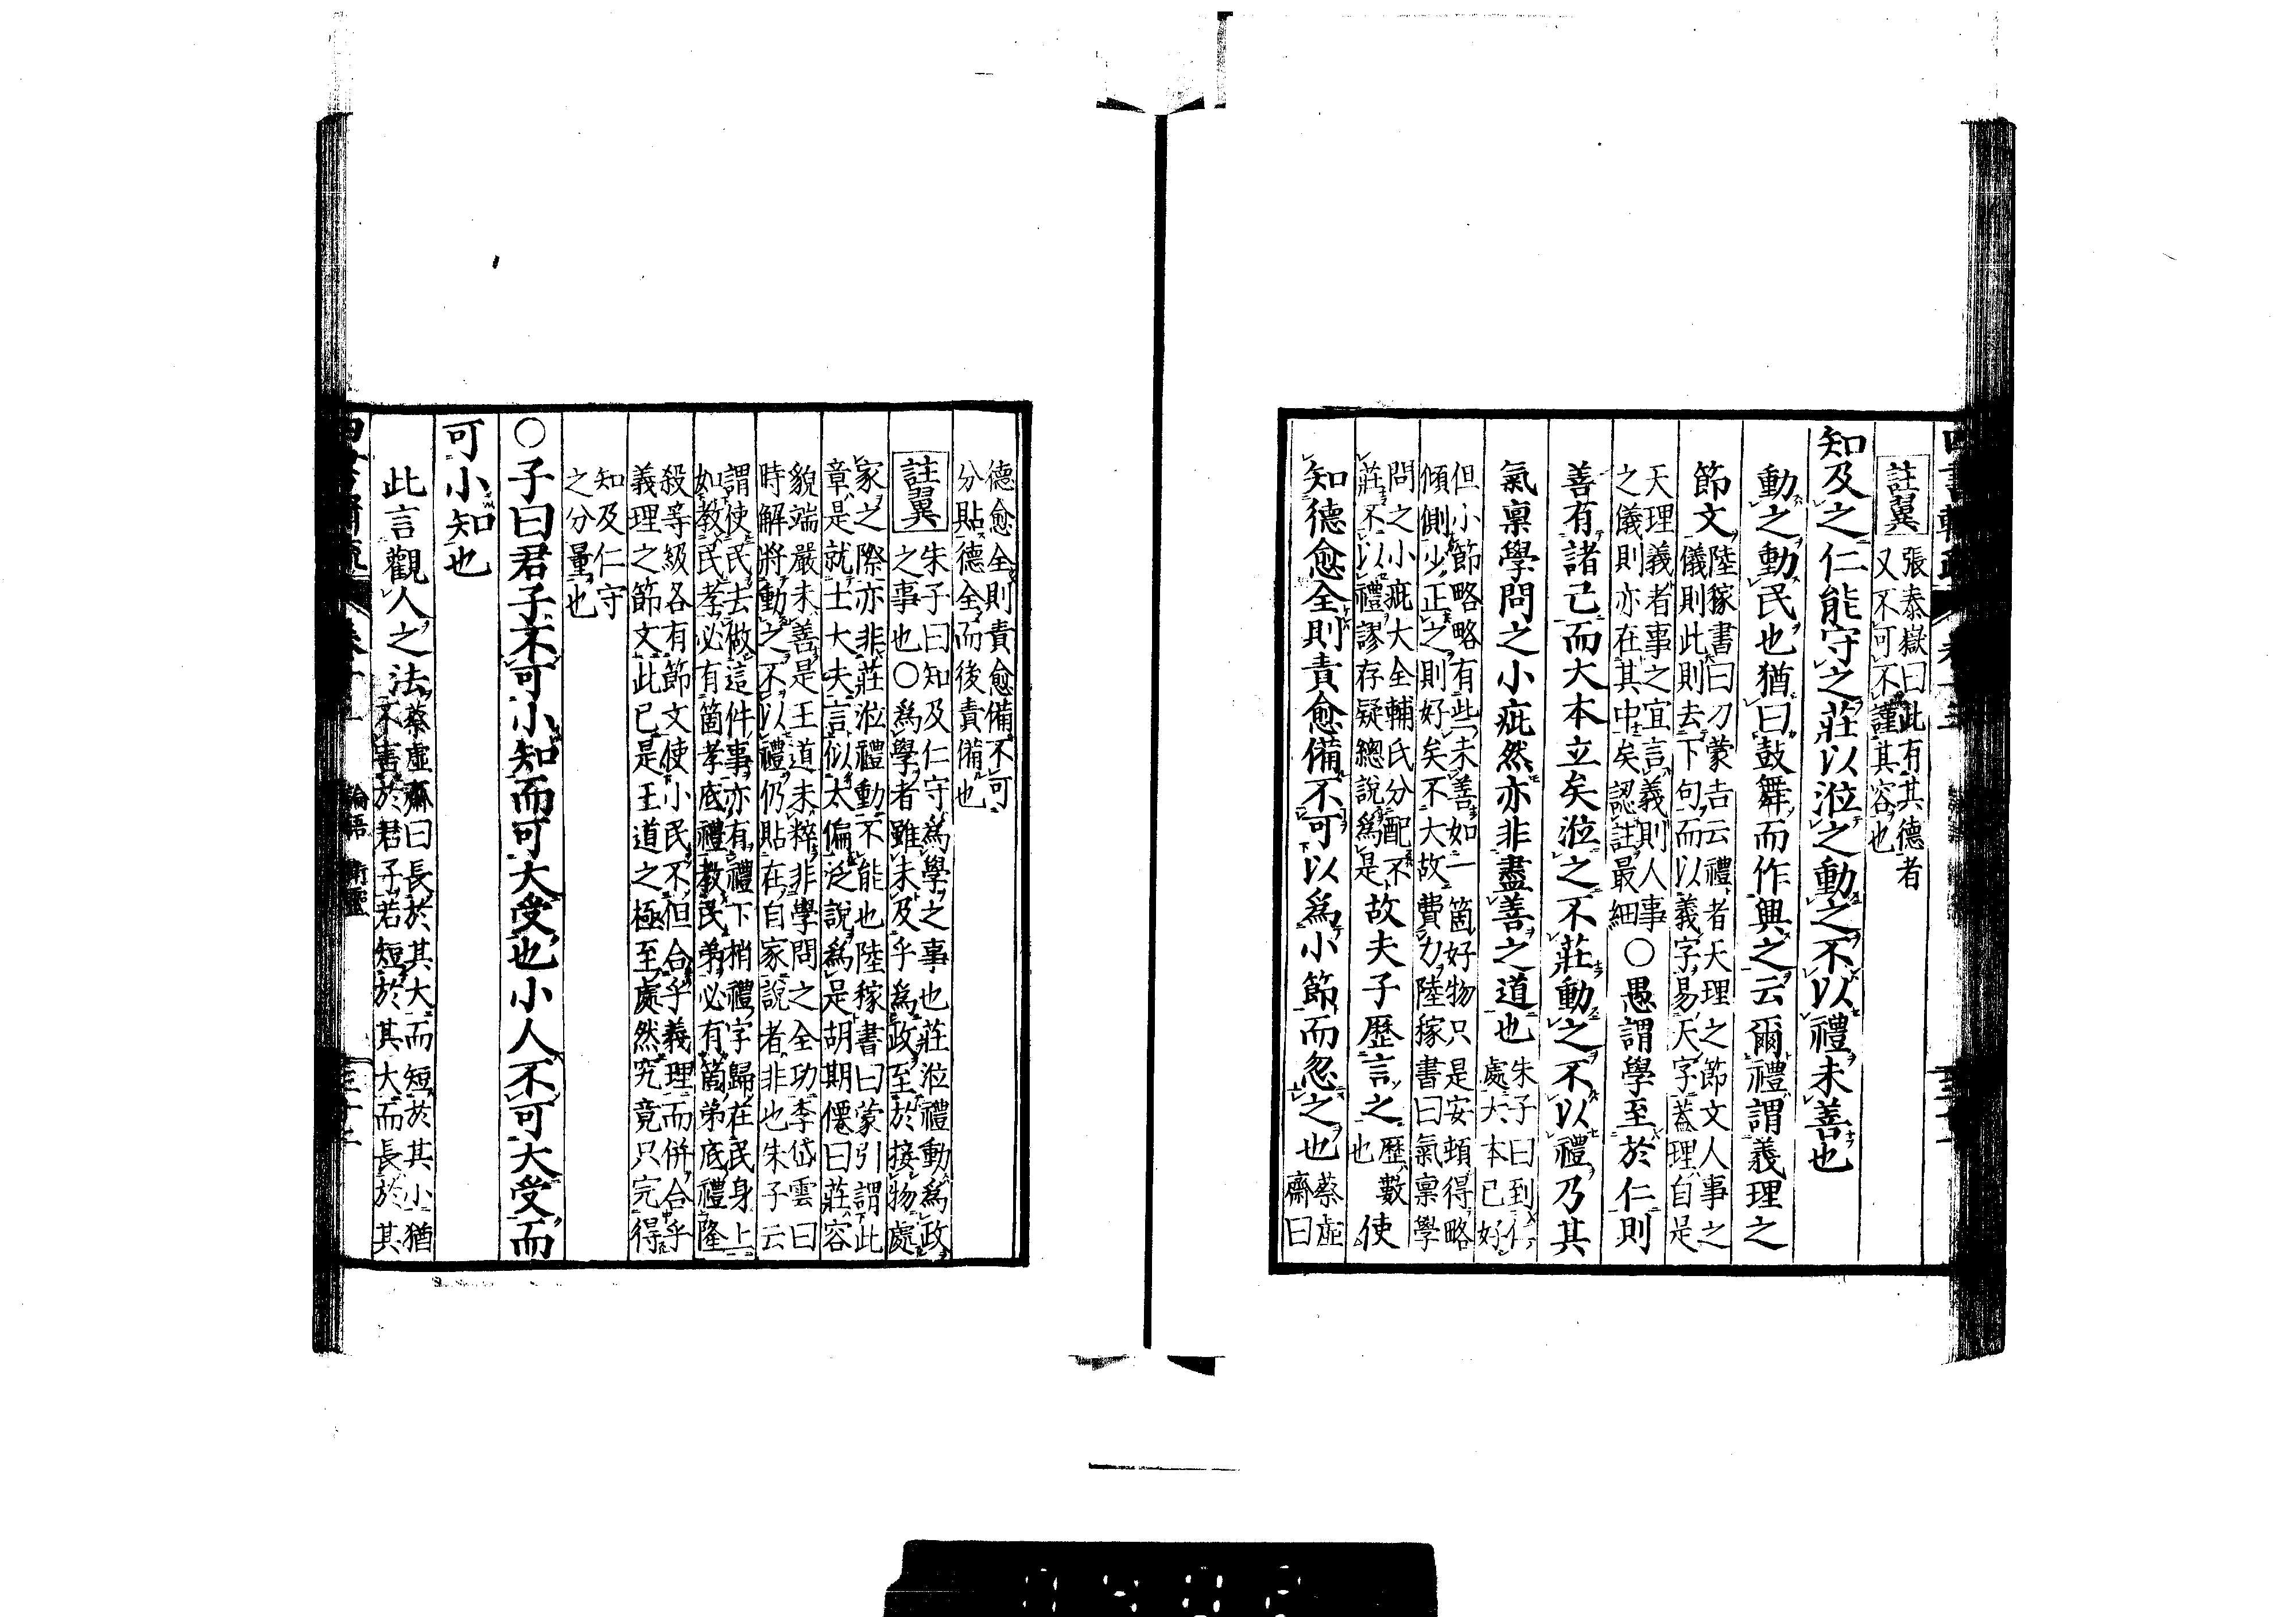 註翼
張泰嶽曰此有其德者
又不可不謹其容也
知及之仁能守之莊以涖之動之不以禮未善也
動之動民也猶曰鼓舞而作興之云爾禮謂義理之
節文
陸稼書曰刁蒙吉云禮者天理之節文人事之
儀則此則去下句而以義字易天字蓋理自是
天理義者事之宜言義則人事
之儀則亦在其中矣認註最細
〇愚謂學至於仁則
善有諸己而大本立矣涖之不莊動之不以禮乃其
氣稟學問之小疵然亦非盡善之道也
朱子曰到仁
處大本已好
但小節略略有些未善如一箇好物只是安頓得略
傾側少正之則好矣不大故費力陸稼書曰氣稟學
問之小疵大全輔氏分配不
莊不以禮謬存疑總說為是
故夫子歷言之
歷數
也
使
知德愈全則責愈備不可以爲小節而忽之也
蔡虛
齋曰
德愈全則責愈備不可
分貼德全而後責備也
註翼
朱子曰知及仁守爲學之事也莊涖禮動爲政
之事也〇爲學者雖未及乎爲政至於接物處
家之際亦非莊涖禮動不能也陸稼書曰蒙引謂此
章是就士大夫言似太偏泛說爲是胡期僊曰莊容
貌端嚴未善是王道未粹非學問之全功李岱雲曰
時解將動之不以禮仍貼在自家說者非也朱子云
謂使民去做這件事亦有禮下梢禮字歸在民身上
如教民孝必有箇孝底禮教民弟必有箇弟底禮隆
殺等級各有節文使小民不但合乎義理而併合乎
義理之節文此已是王道之極至處然究竟只完得
知及仁守
之分量也
〇子曰君子不可小知而可大受也小人不可大受而
可小知也
此言觀人之法
蔡虛齋曰長於其大而短於其小猶
不害於君子若短於其大而長於其
論語 衛靈